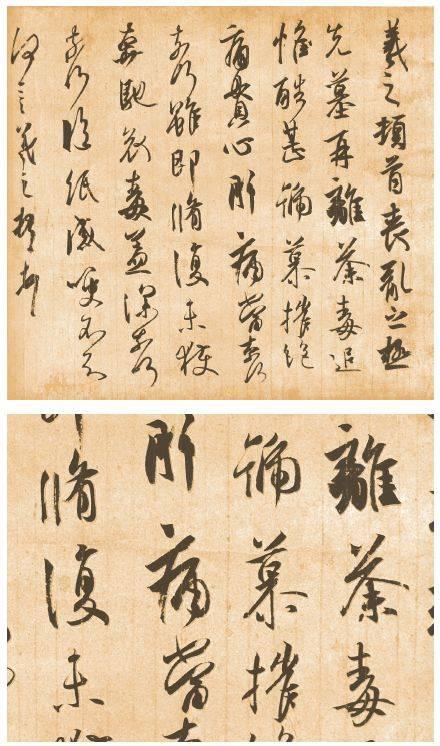 羲之頓首喪亂之極
先墓再離荼毒追
惟酷甚號慕摧絕
痛貫心肝痛當奈何
奈何雖即脩復未獲
奔馳哀毒益深奈何
奈何臨紙感哽不知
何言羲之頓首頓首
離荼毒
號慕摧
肝痛當
脩復未